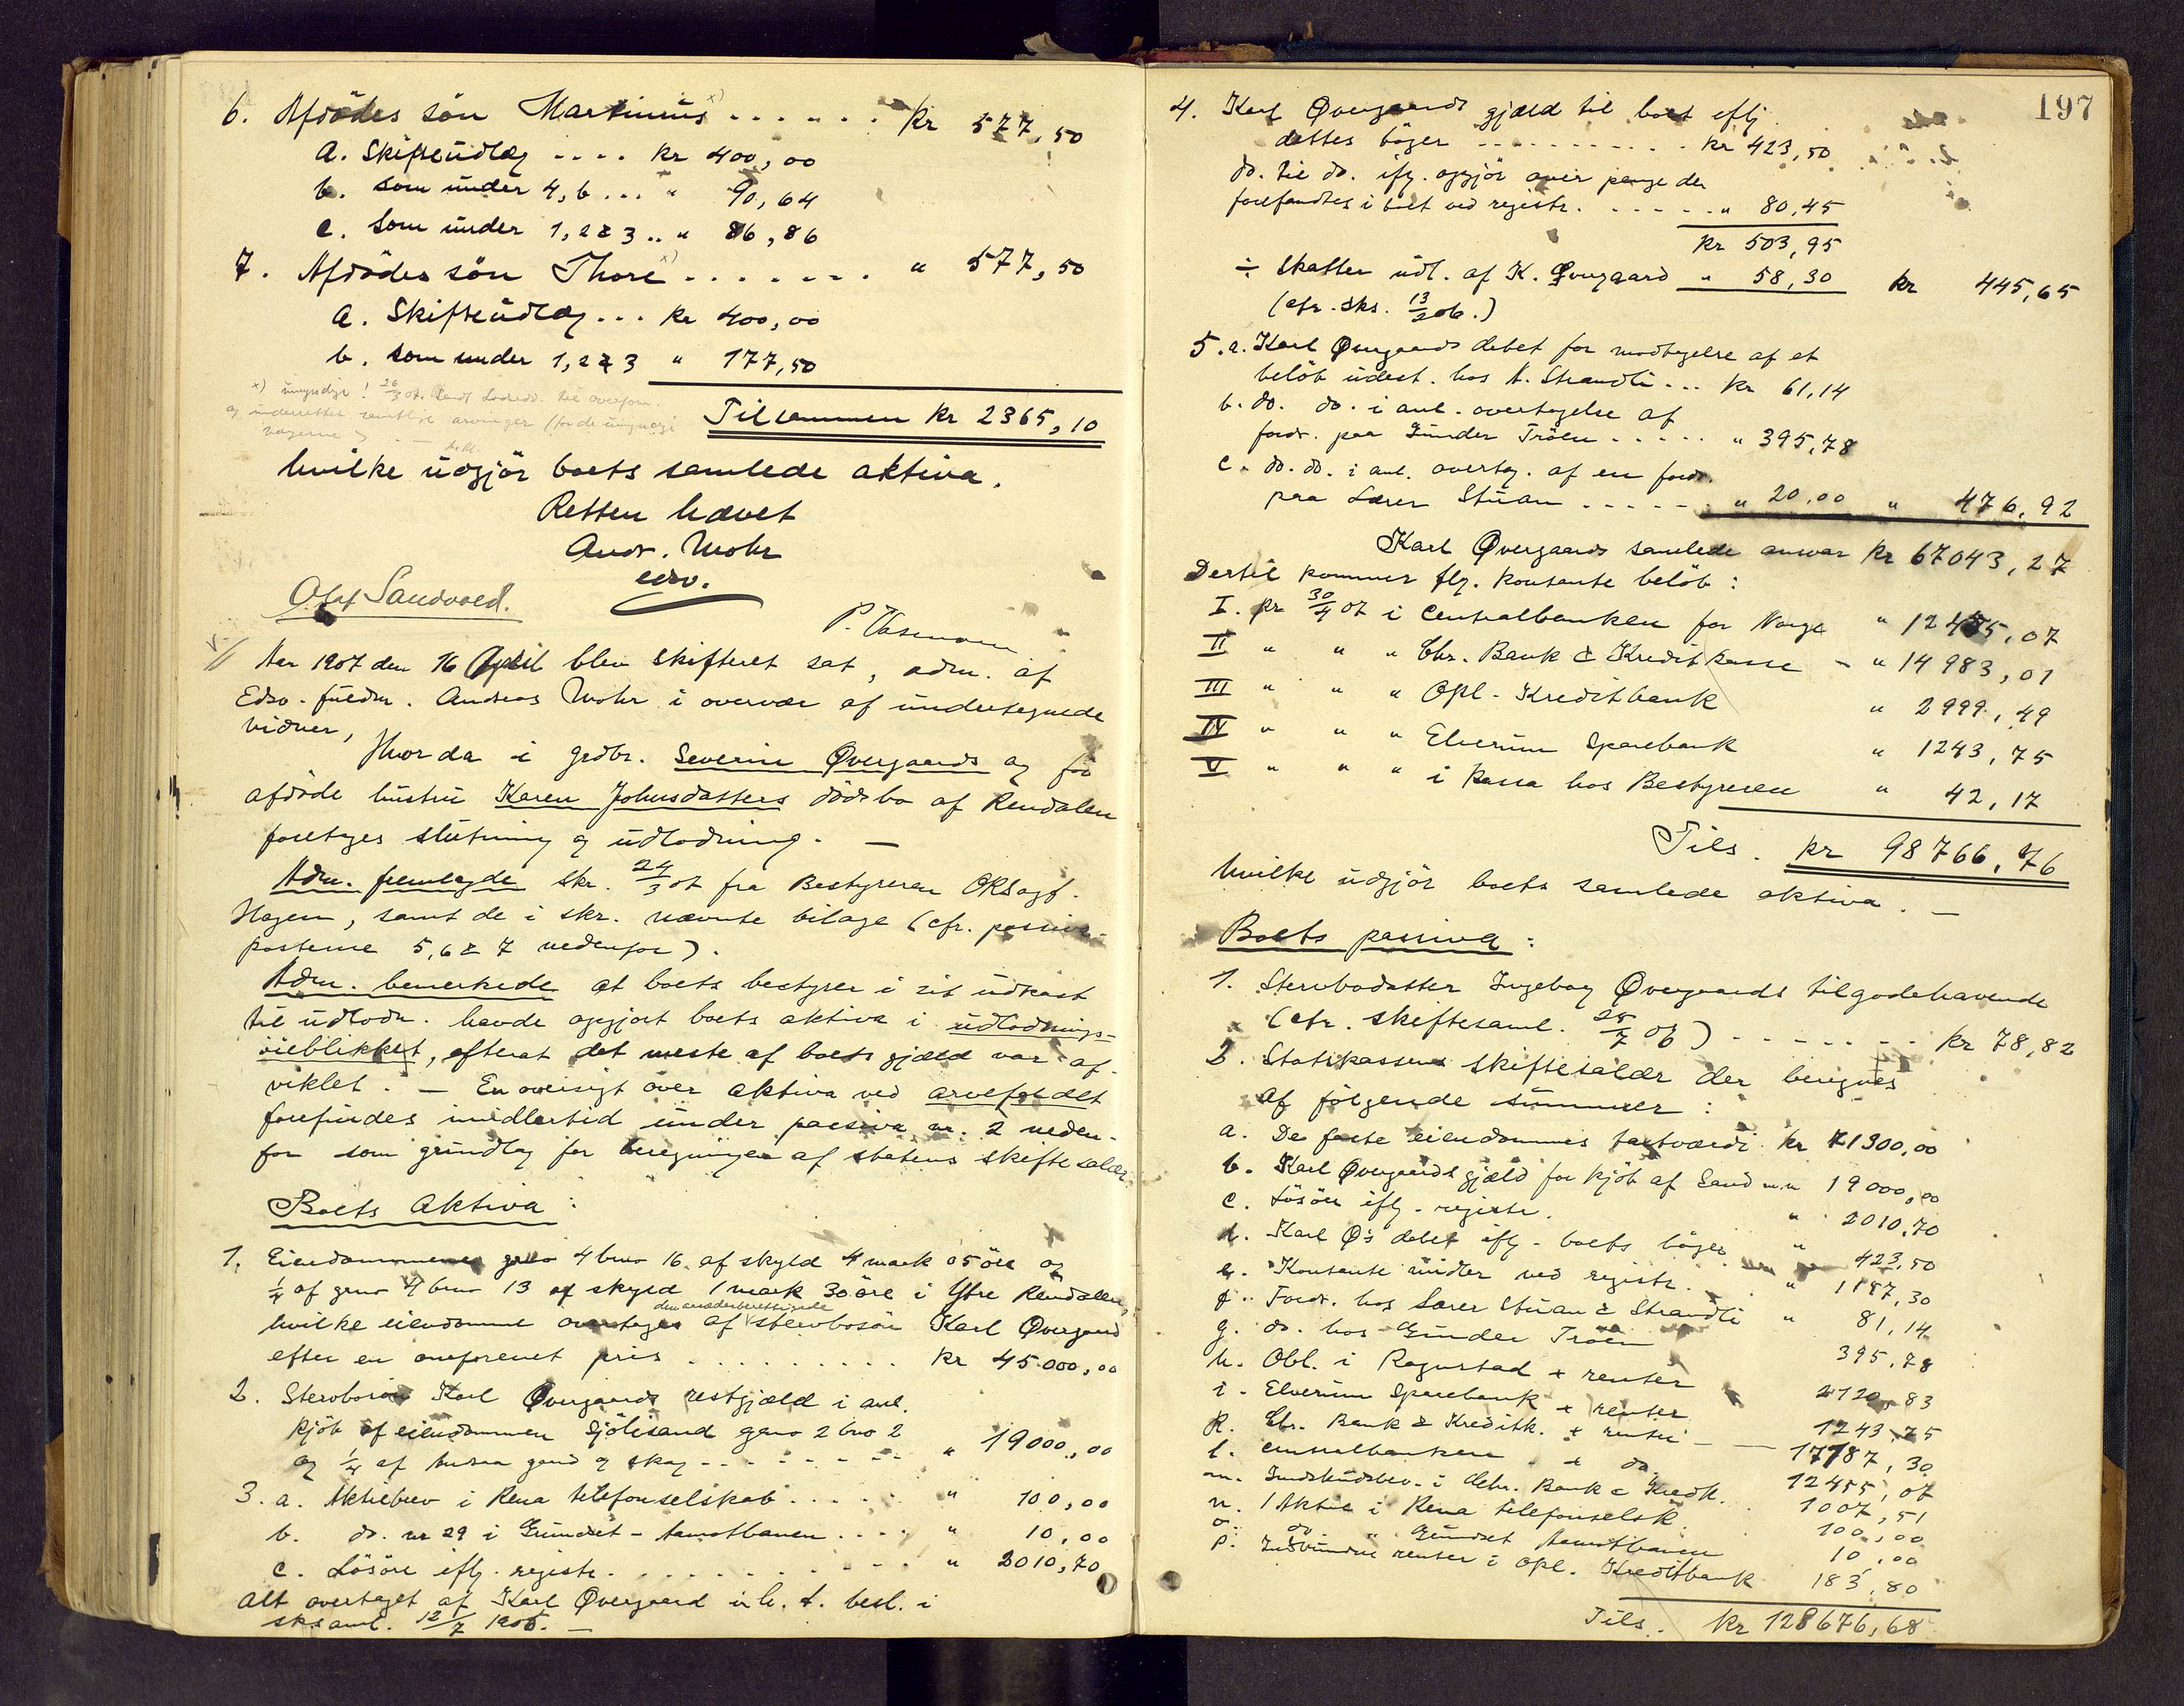 6. Afdödes sön Martinus x) . . . . . . kr 577,50
a. Skifteudlæg .... kr 400,00
b. som under 4,b ... " 90,64
c. som under 1,2 & 3 .. " 86,86
7. Afdödes sön Thore x) . . . . . . . " 577,50
a. Skifteudlæg ... kr 400,00
b. som under 1,2 & 3 " 177,50
x) umyndige! 26/3 07 sendt
og underrettet samtlige arvinger (for de umyndige
vægerne)
Tilsammen kr 2365,10
hvilke udgjör boets samlede aktiva.
Retten hævet
Andr. Mohr
edsv.
Olaf Sandvold.
Aar 1907 den 16 April blev skifteret sat, adm. af
Edsv. fuldm. Andreas Mohr i overvær af undertegnede
vidner,
Hvor da i grdbr. Severin Övergaards og for
afdöde hustru Karen Johnsdatters dödsbo af Rendalen
foretoges slutning og udlodning. —
Adm. fremlagde skr. 24/3 07 fra Bestyreren ORSagf.
Hagen, samt de i skr. nævnte bilage (cfr. passiva-
posterne 5,6 & 7 nedenfor).
Adm. bemerkede at boets bestyrer i sit udkast
til udlodn. havde opgjort boets aktiva i udlodnings-
öieblikket, efterat det meste af boets gjæld var af-
viklet. — En oversigt over aktiva ved arvefaldet
forefindes imidlertid under passiva nr. 2 neden-
for som grundlag for beregningen af statens skiftesalær.
Boets Aktiva:
1. Eiendommene gno 4 bno 16 af skyld 4 mark 05 öre og
1/4 af gno 4 bno 13 af skyld 1 mark 30 öre i Ytre Rendalen,
den aasædesberettigede
hvilke eiendomme overtages af stervbosön Karl Övergaard
efter en omforenet pris . . . . . . . . . kr 45.000,00
2. Stervbosön Karl Övergaards restgjæld i anl.
kjöb af eiendommen Sjölisand gno 2 bno 2
og 1/4 af gaard og skog - - - - - - - - " 19000,00
3. a. Aktiebrev i Rena telefonselskab . . . . . " 100,00
b. do. nr 29 i Grundset - Aamotbanen . . . . " 10,00
c. Lösöre iflg. registr. . . . . . . . . . . " 2010,70
Alt overtaget af Karl Övergaard i h. t. besl. i
sksaml. 12/7 1906. —
197
4. Karl Övergaards gjæld til boet iflg
dettes böger . . . . . . . . . . kr 423,50
do. til do. iflg. opgjör over penge der
forefandtes i boet ved registr. . . . . . " 80,45
kr 503,95
÷ skatter udl. af K. Övergaard " 58,30 kr 445,65
(cfr. sks. 13/2 06.)
5. a. Karl Övergaards debet for modtagelse af et
belöb udest. hos N. Strandli ... kr 61,14
b. do. do. i anl. overtagelse af
fordr. paa Gunder Tröen . . . . . " 395,78
c. do. do. i anl. overtag. af en fordr.
paa Lærer Stuan . . . . . " 20,00 " 476,92
Karl Övergaards samlede ansvar kr 67043,27
Dertil kommer flg. kontante belöb:
I. pr 30/4 07 i Centralbanken for Norge " 12455,07
II " " " Chr. Bank & Kreditkasse - " 14983,01
III " " " Opl. Kreditbank " 2999,49
IV " " " Elverum Sparebank " 1243,75
V " " " i kassa hos Bestyreren " 42,17
Tils. kr 98766,76
hvilke udgjör boets samlede aktiva. —
Boets passiva:
1. Stervbodatter Ingeborg Övergaards tilgodehavende
(cfr. skiftesaml. 25/7 06) . . . . . . . kr 78,82
2. Statskassens skiftesalær der beregnes
af fölgende summer:
a. De faste eiendommes taxtværdi kr 71300,00
b. Karl Övergaards gjæld for kjöb af Sand m.m 19000,00
c. Lösöre iflg. registr. " 2010,70
d. Karl Ö's debet iflg. boets böger " 423,50
e. Kontante midler ved registr. " 1157,30
f. Fordr. hos Lærer Stuan & Strandli " 81,14
g. do. hos Gunder Tröen 395,78
h. Obl. i Rogustad + renter 2120,83
i. Elverum Sparebank + renter 1243,75
k. Chr. Bank & Kreditk. + renter - — 17187,30
l. Centralbanken + do. 12455,07
m. Indskudsbev. i Chr. Bank & Kredk. 1007,51
n. 1 Aktie i Rena telefonselsk. 100,00
o. do " Grundset Aamotbanen 10,00
p. Indvundne renter i Opl. Kreditbank 183,80
Tils. kr 128676,68